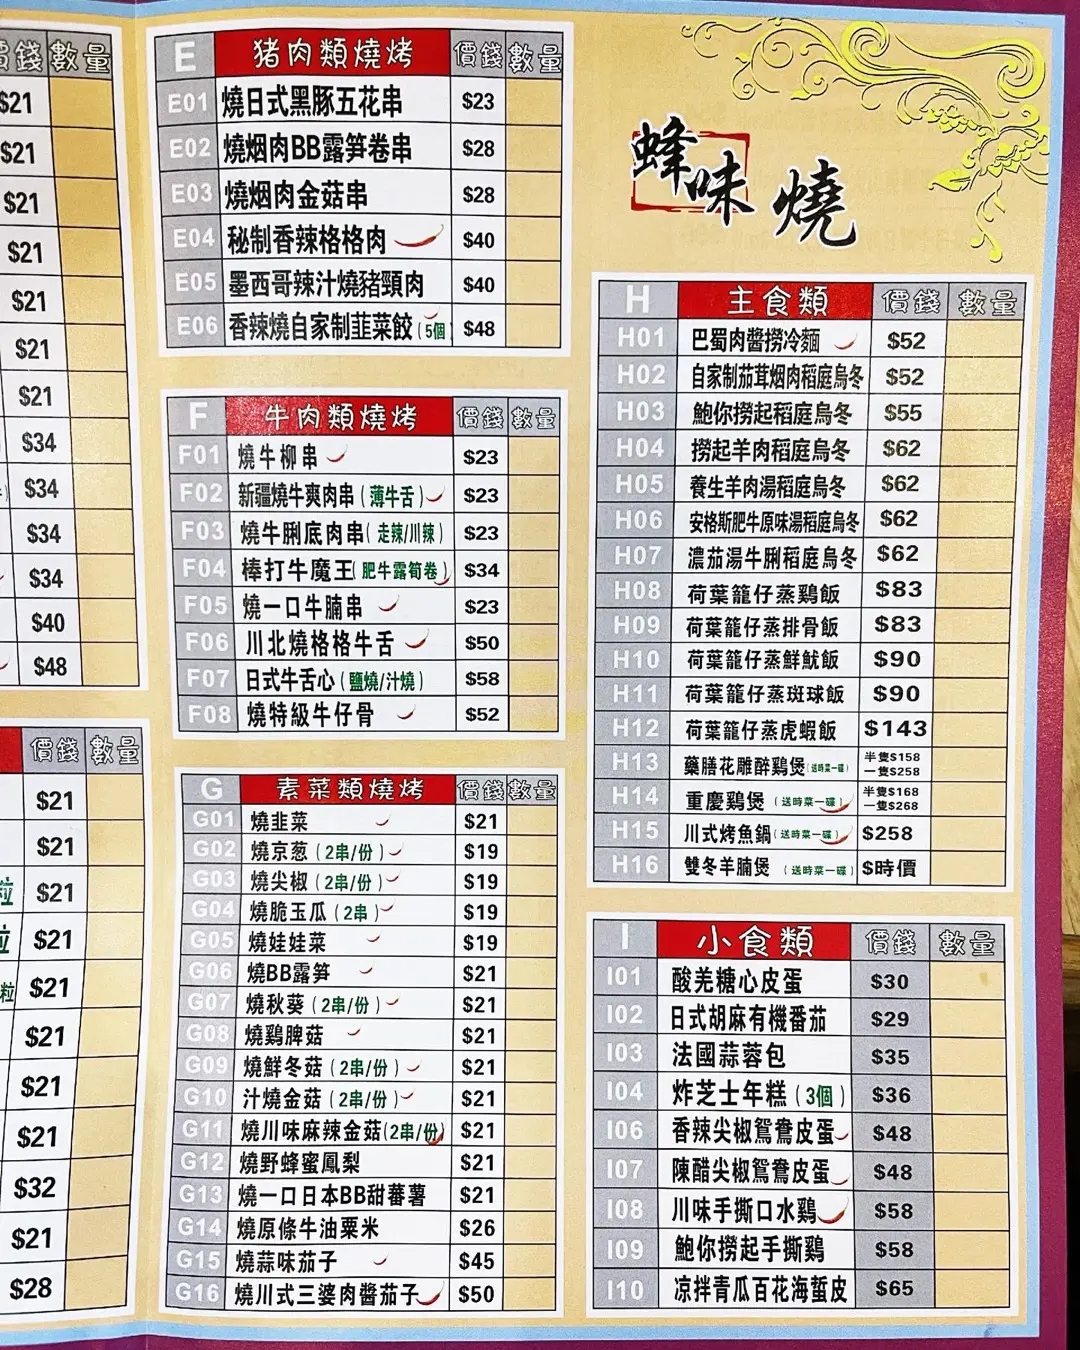 價錢 數量
$21
$21
$21
$21
$21
$21
$21
$34
$34
$34
$34
$40
$48
價錢 數量
$21
$21
粒 $21
粒 $21
粒 $21
$21
$21
$21
$32
$21
$28
E 猪肉類燒烤 價錢 數量
E01 燒日式黑豚五花串 $23
E02 燒烟肉BB露笋卷串 $28
E03 燒烟肉金菇串 $28
E04 秘制香辣格格肉 $40
E05 墨西哥辣汁燒豬頸肉 $40
E06 香辣燒自家制韮菜餃(5個) $48
F 牛肉類燒烤 價錢 數量
F01 燒牛柳串 $23
F02 新疆燒牛爽肉串(薄牛舌) $23
F03 燒牛脷底肉串(走辣/川辣) $23
F04 棒打牛魔王(肥牛露荀卷) $34
F05 燒一口牛腩串 $23
F06 川北燒格格牛舌 $50
F07 日式牛舌心(鹽燒/汁燒) $58
F08 燒特級牛仔骨 $52
G 素菜類燒烤 價錢 數量
G01 燒韭菜 $21
G02 燒京葱(2串/份) $19
G03 燒尖椒(2串/份) $19
G04 燒脆玉瓜(2串) $19
G05 燒娃娃菜 $19
G06 燒BB露笋 $21
G07 燒秋葵(2串/份) $21
G08 燒鷄脾菇 $21
G09 燒鮮冬菇(2串/份) $21
G10 汁燒金菇(2串/份) $21
G11 燒川味麻辣金菇(2串/份) $21
G12 燒野蜂蜜鳳梨 $21
G13 燒一口日本BB甜蕃薯 $21
G14 燒原條牛油粟米 $26
G15 燒蒜味茄子 $45
G16 燒川式三婆肉醬茄子 $50
蜂味燒
H 主食類 價錢 數量
H01 巴蜀肉醬撈冷麵 $52
H02 自家制茄茸烟肉稻庭烏冬 $52
H03 鮑你撈起稻庭烏冬 $55
H04 撈起羊肉稻庭烏冬 $62
H05 養生羊肉湯稻庭烏冬 $62
H06 安格斯肥牛原味湯稻庭烏冬 $62
H07 濃茄湯牛脷稻庭烏冬 $62
H08 荷葉籠仔蒸鷄飯 $83
H09 荷葉籠仔蒸排骨飯 $83
H10 荷葉籠仔蒸鮮魷飯 $90
H11 荷葉籠仔蒸斑球飯 $90
H12 荷葉籠仔蒸虎蝦飯 $143
H13 藥膳花雕醉鷄煲(送時菜一碟) 半隻$158 一隻$258
H14 重慶鷄煲(送時菜一碟) 半隻$168 一隻$268
H15 川式烤魚鍋(送時菜一碟) $258
H16 雙冬羊腩煲(送時菜一碟) $時價
I 小食類 價錢 數量
I01 酸羌糖心皮蛋 $30
I02 日式胡麻有機番茄 $29
I03 法國蒜蓉包 $35
I04 炸芝士年糕(3個) $36
I06 香辣尖椒鴛鴦皮蛋 $48
I07 陳醋尖椒鴛鴦皮蛋 $48
I08 川味手撕口水鷄 $58
I09 鮑你撈起手撕鷄 $58
I10 凉拌青瓜百花海蜇皮 $65